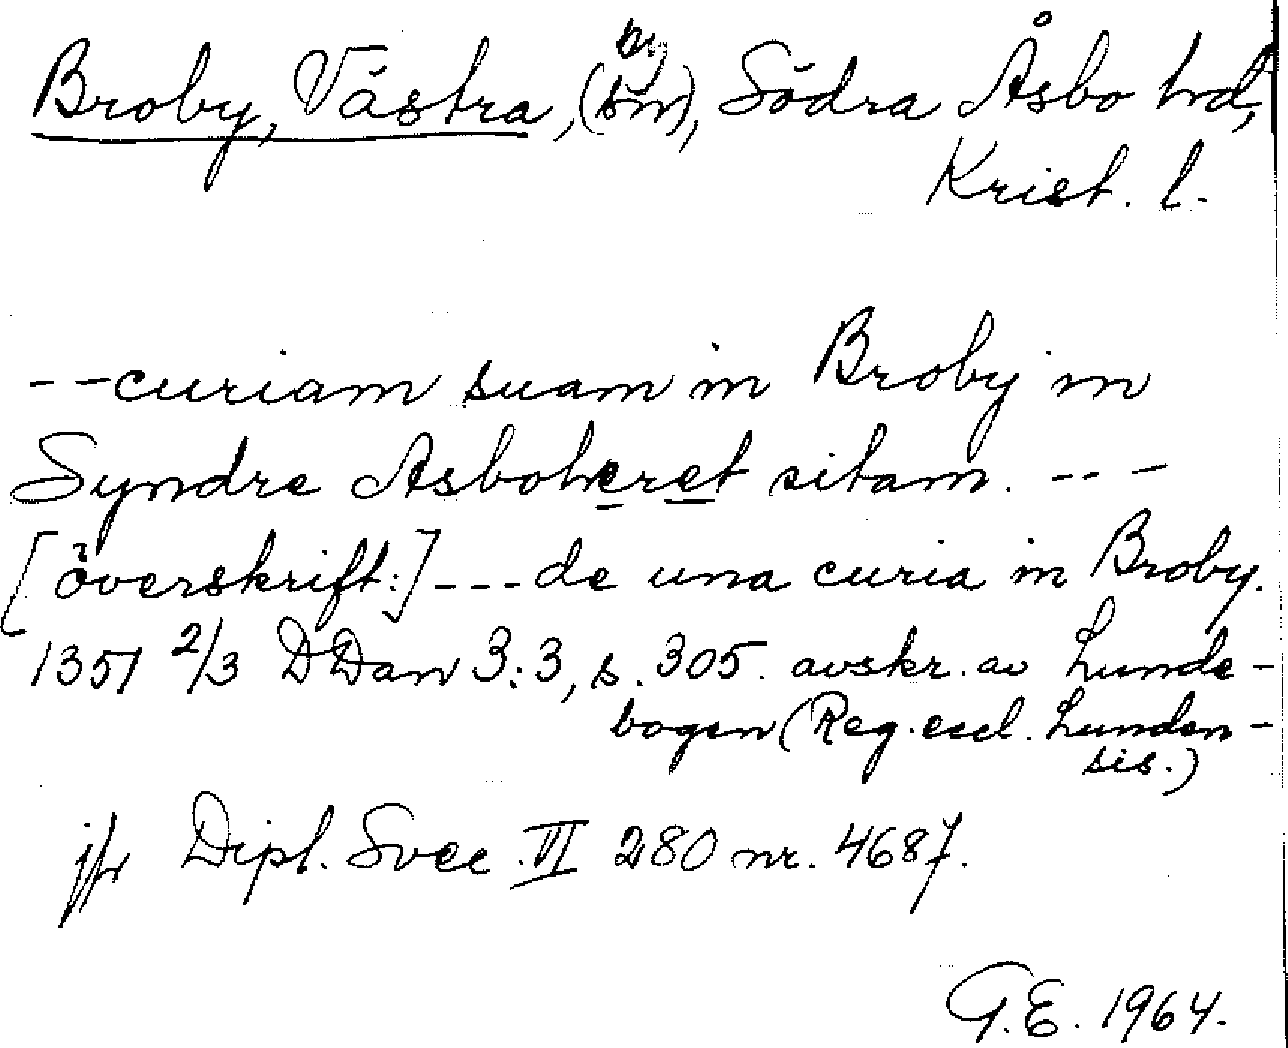 Broby, Västra, (by sn), Södra Åsbo hd,
Krist. l.
--curiam suam in Broby in
Syndre Asboheret sitam. ---
[överskrift:] --- de una curia in Broby.
1351 2/3 DDan 3:3, s. 305. avskr. av Lunde-
bogen (Reg. eccl. Lunden-
sis.)
jfr Dipl. Svec. VI 280 nr. 4687.
G.E. 1964.